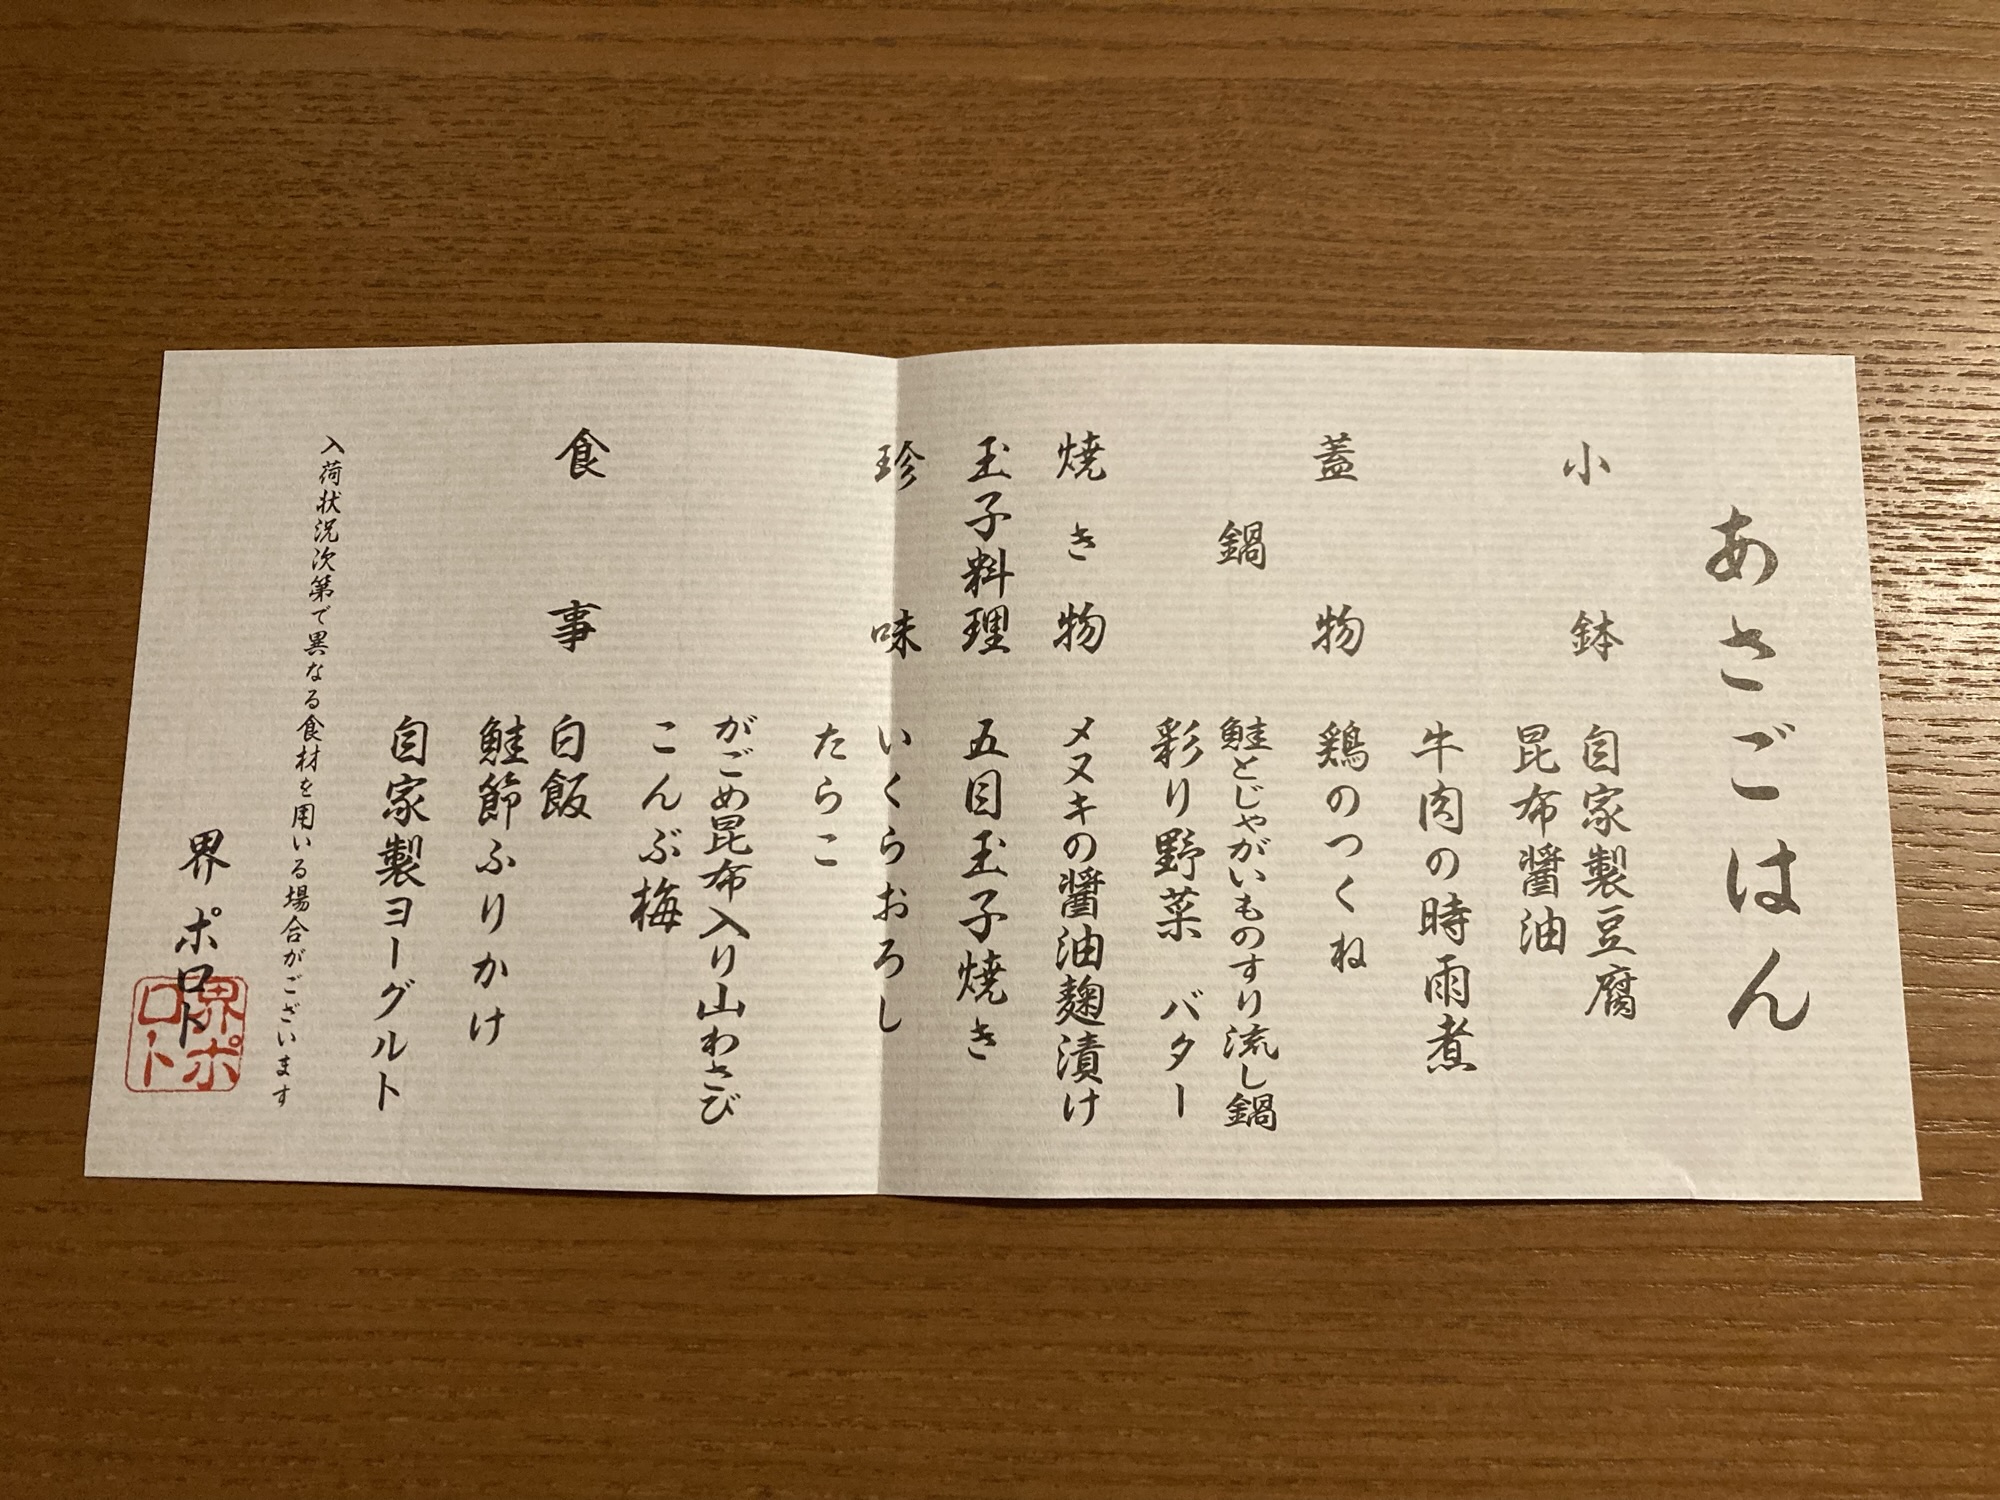 あさごはん
小鉢
自家製豆腐
昆布醤油
牛肉の時雨煮
蓋物
鶏のつくね
鍋
鮭とじゃがいものすり流し鍋
彩り野菜 バター
焼き物
メヌキの醤油麹漬け
玉子料理
五目玉子焼き
珍味
いくらおろし
たらこ
がごめ昆布入り山わさび
こんぶ梅
食事
白飯
鮭節ふりかけ
自家製ヨーグルト
入荷状況次第で異なる食材を用いる場合がございます
界 ポロト
界ポ
ロト